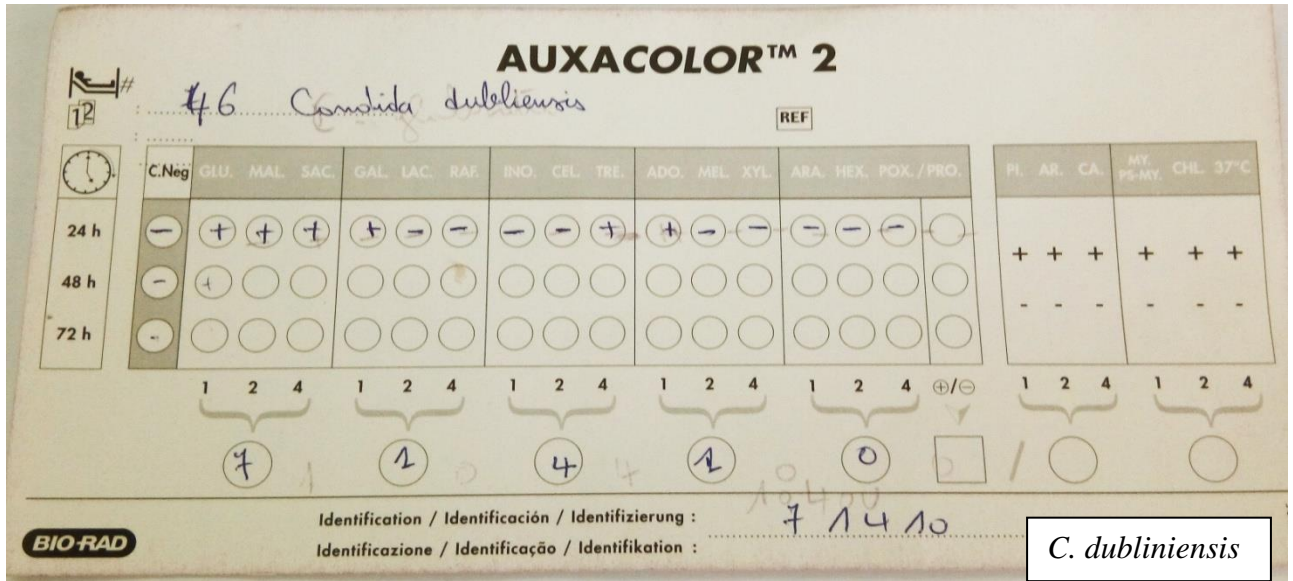 AUXACOLOR™ 2
#
12 : 46 Candida dubliensis
REF
C.Neg GLU. MAL. SAC. GAL. LAC. RAF. INO. CEL. TRE. ADO. MEL. XYL. ARA. HEX. POX. / PRO. PI. AR. CA. MY. PS-MY. CHL. 37°C
24 h - + + + + - - - - + + - - - - -
+ + + + + +
48 h - +
- - - - - -
72 h -
1 2 4 1 2 4 1 2 4 1 2 4 1 2 4 ⊕/⊖ 1 2 4 1 2 4
7 1 4 1 0 /
Identification / Identificación / Identifizierung : 7 1 4 1 0
Identificazione / Identificação / Identifikation :
BIO-RAD
C. dubliniensis